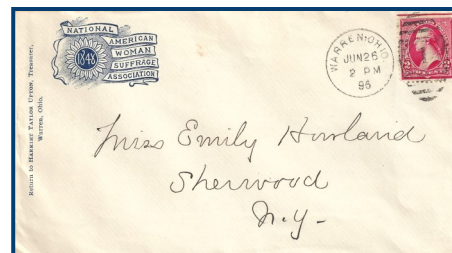 NATIONAL
AMERICAN
WOMAN
SUFFRAGE
ASSOCIATION
1848
Return to HARRIET TAYLOR UPTON, Treasurer,
Warren, Ohio.
WARREN, OHIO.
JUN 26
2 PM
96
Miss Emily Howland
Sherwood
N.Y-